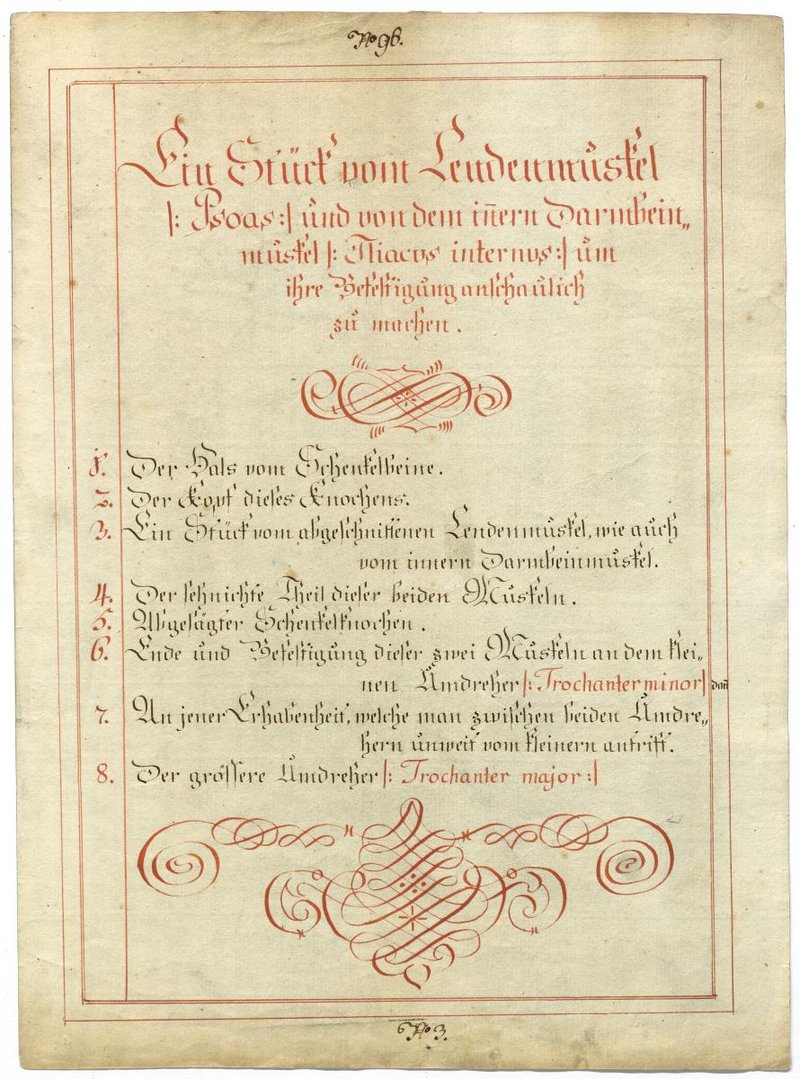 No 96.
Ein Stück vom Lendenmuskel
|: Psoas :| und von dem in̄ern Darmbein„
muskel |: Iliacus internus :| um
ihre Befestigung anschaulich
zu machen.
1. Der Hals vom Schenkelbeine.
2. Der Kopf dieses Knochens.
3. Ein Stück vom abgeschnittenen Lendenmuskel, wie auch
vom innern Darmbeinmuskel.
4. Der sehnichte Theil dieser beiden Muskeln.
5. Abgesägter Schenkelknochen.
6. Ende und Befestigung dieser zwei Muskeln an dem klei„
nen Umdreher |: Trochanter minor| dan̄
7. An jener Erhabenheit, welche man zwischen beiden Umdre„
hern unweit vom kleinern antrift.
8. Der grössere Umdreher |: Trochanter major :|
No 3.